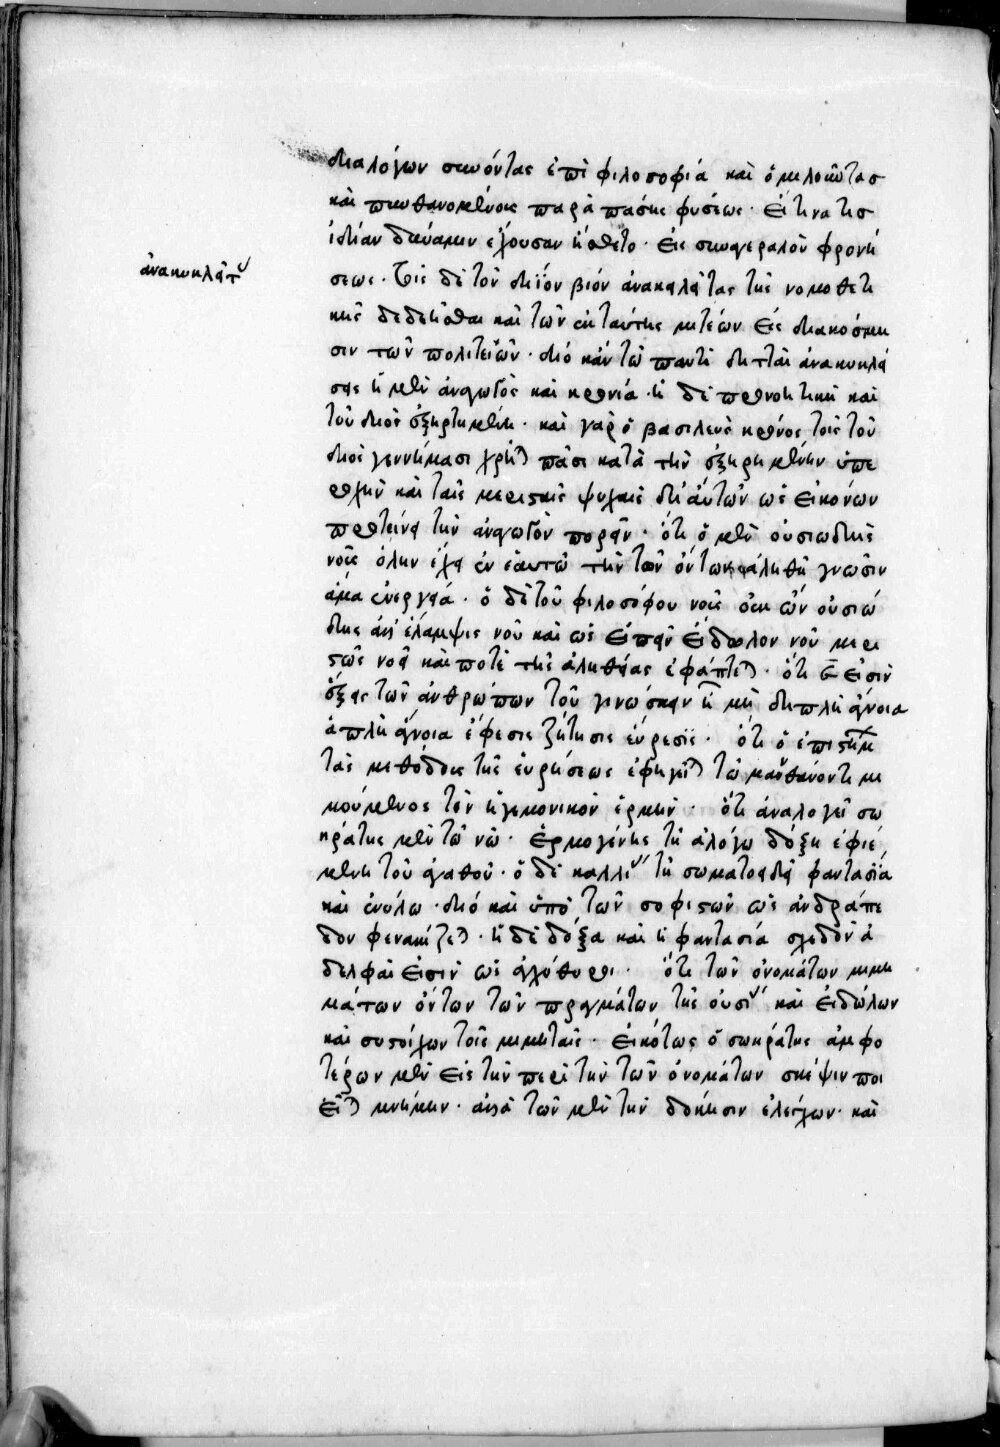 διαλόγων συνόντας ἐπὶ φιλοσοφία καὶ ὁμιλοῦντας
καὶ πυνθανομένοις παρὰ πάσης φύσεως. εἴ τινά τις
ἰδίαν δύναμιν ἔχουσαν ᾔσθετο. εἰς συναγερμὸν φρονή
ἀνακυκλ
σεως. τοῖς δὲ τὸν δίϊον βίον τῆς νομοθετι
κῆς δεδεῆσθαι καὶ τῶν ἐκ ταύτης μιτέων εἰς διακόσμη
σιν τῶν πολιτειῶν. διὸ κἀν τῷ παντὶ διτταὶ ἀνακυκλή
σεις ἡ μὲν ἀναγωγὸς καὶ κρονία. ἡ δὲ προνοητικὴ καὶ
τοῦ διὸς ἐξηρτημένη. καὶ γὰρ ὁ βασιλεὺς κρόνος τοῖς τοῦ
διὸς γεννήμασι χρῆται πᾶσι κατὰ τὴν ἐξῃρημένην ὑπε
ροχὴν καὶ ταῖς μερικαῖς ψυχαῖς δι' αὐτῶν ὡς εἰκόνων
προτείνει τὴν ἀναγωγὸν πορείαν. ὅτι ὁ μὲν οὐσιώδης
νοῦς ὅλην ἔχει ἐν ἑαυτῷ τὴν τῶν ὄντων ἀληθῆ γνῶσιν
ἅμα ἐνεργείᾳ. ὁ δὲ τοῦ φιλοσόφου νοῦς οὐκ ὢν οὐσιώ
δης ἀλλ' ἔλαμψις νοῦ καὶ ὡς εἰπεῖν εἴδωλον νοῦ μερι
κῶς νοεῖ καὶ ποτὲ τῆς ἀληθείας ἐφάπτεται. ὅτι ε εἰσὶν
ἕξεις τῶν ἀνθρώπων τοῦ γινώσκειν ἢ μὴ διπλῆ ἄγνοια
ἁπλῆ ἄγνοια ἔφεσις ζήτησις εὕρεσις. ὅτι ὁ ἐπιστήμ
τὰς μεθόδους τῆς εὑρήσεως ἐφηγεῖται τῷ μανθάνοντι μι
μούμενος τὸν ἡγεμονικὸν ἑρμῆν. ὅτι ἀναλογεῖ σω
κράτης μὲν τῷ νῷ. ἑρμογένης τῇ ἀλόγῳ δόξῃ ἐφιε
μένῃ τοῦ ἀγαθοῦ. ὁ δὲ καλλί τῇ σωματοειδεῖ φαντασίᾳ
καὶ ἐνύλῳ. διὸ καὶ ὑπὸ τῶν σοφιστῶν ὡς ἀνδράπο
δον φενακίζεται. ἡ δὲ δόξα καὶ ἡ φαντασία σχεδὸν ἀ
δελφαὶ εἰσὶν ὡς ἀγχίθυροι. ὅτι τῶν ὀνομάτων μιμη
μάτων ὄντων τῶν πραγμάτων τῆς οὐσί καὶ εἰδώλων
καὶ συστοίχων τοῖς μιμηταῖς. εἰκότως ὁ σωκράτης ἀμφο
τέρων μὲν εἰς τὴν περὶ τὴν τῶν ὀνομάτων σκέψιν ποι
εῖται μνήμην. ἀλλὰ τῶν μὲν τὴν δόκησιν ἐλέγχων. καὶ